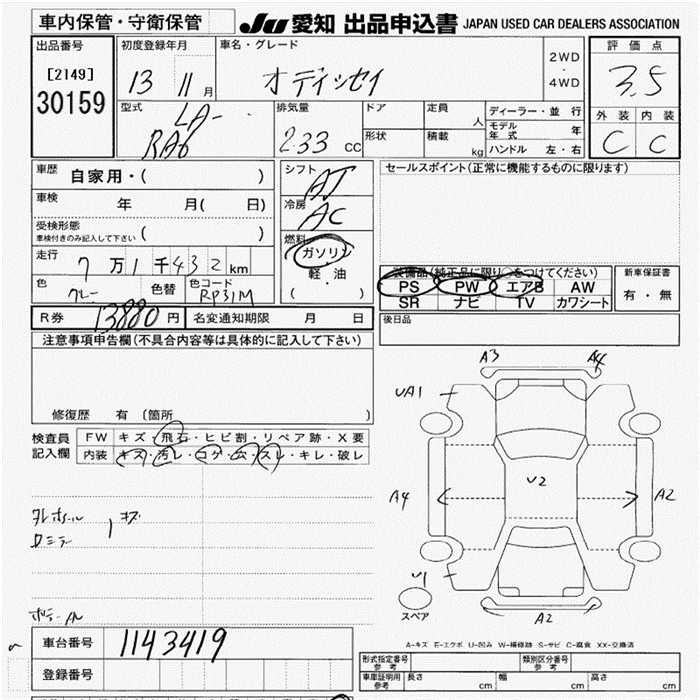 車内保管・守衛保管
JU 愛知 出品申込書 JAPAN USED CAR DEALERS ASSOCIATION
出品番号
[2149]
30159
初度登録年月
13 11月
車名・グレード
オディッセイ
2WD
・
4WD
評価点
3.5
外装 内装
C C
型式
LA-
RA6
排気量
233 CC
ドア
形状
定員 人
積載 kg
ディーラー・並行
モデル年式 年
ハンドル 左・右
車歴
自家用・( )
車検 年 月( 日)
受検形態
車検付きのみ記入して下さい ( )
走行 7万1千432km
色 グレー 色替 色コード RP31M
シフト AT
冷房 AC
燃料
ガソリン
軽・油
( )
セールスポイント(正常に機能するものに限ります)
装備品(純正品に限り○をつけてください)
PS PW エアB AW
SR ナビ TV カワシート
新車保証書
有・無
R券 13880円 名変通知期限 月 日
後日品
注意事項申告欄(不具合内容等は具体的に記入して下さい)
修復歴 有 (箇所 )
検査員記入欄
FW キズ・飛石・ヒビ割・リペア跡・X要
内装 キズ・汚レ・コゲ・穴・スレ・キレ・破レ
キズ
A3 A4
UA1
A4 U2 A2
U1
スペア
A2
A-キズ E-エクボ U-凹み W-補修跡 S-サビ C-腐食 XX-交換済
車台番号 1143419
登録番号
形式指定番号 参考
類別区分番号 参考
車庫証明用 参考 長さ cm 幅 cm 高さ cm